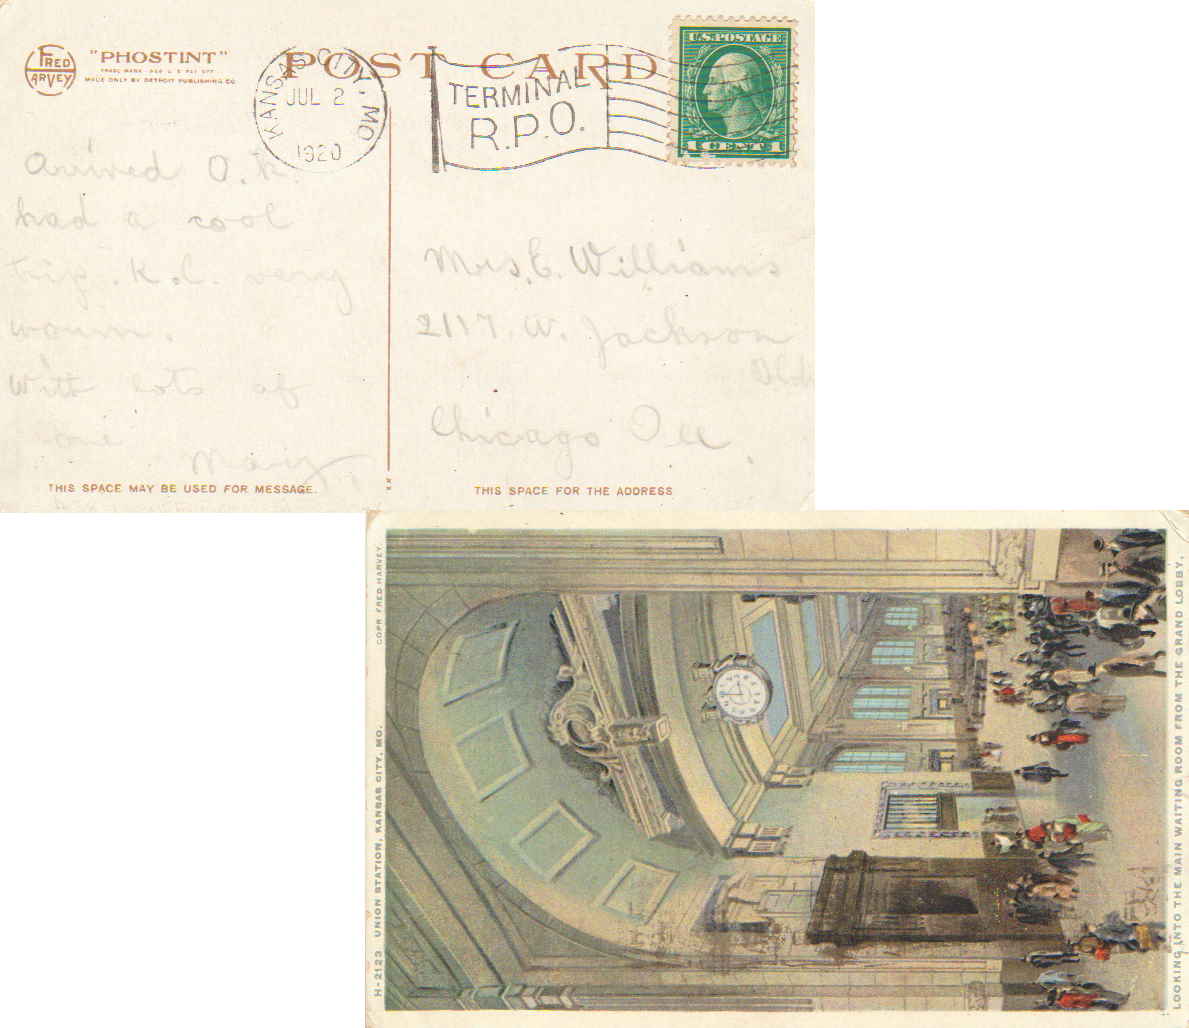 FRED
HARVEY
"PHOSTINT"
TRADE MARK REG U S PAT OFF
MADE ONLY BY DETROIT PUBLISHING CO.
POST CARD
KANSAS CITY, MO.
JUL 2
1920
TERMINAL
R.P.O.
U.S. POSTAGE
1 CENT 1
Arrived O.K.
had a cool
trip. K.C. very
warm.
With lots of
Mary.
THIS SPACE MAY BE USED FOR MESSAGE.
Mrs. E. Williams
2117 W. Jackson
Chicago Ill.
THIS SPACE FOR THE ADDRESS
H-2123 UNION STATION, KANSAS CITY, MO.
COPR. FRED HARVEY
LOOKING INTO THE MAIN WAITING ROOM FROM THE GRAND LOBBY.